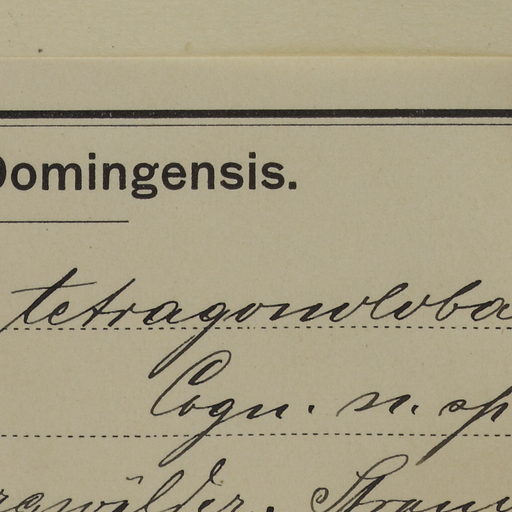 Domingensis.
tetragonoloba
Cogn. n. sp
rgwälder.